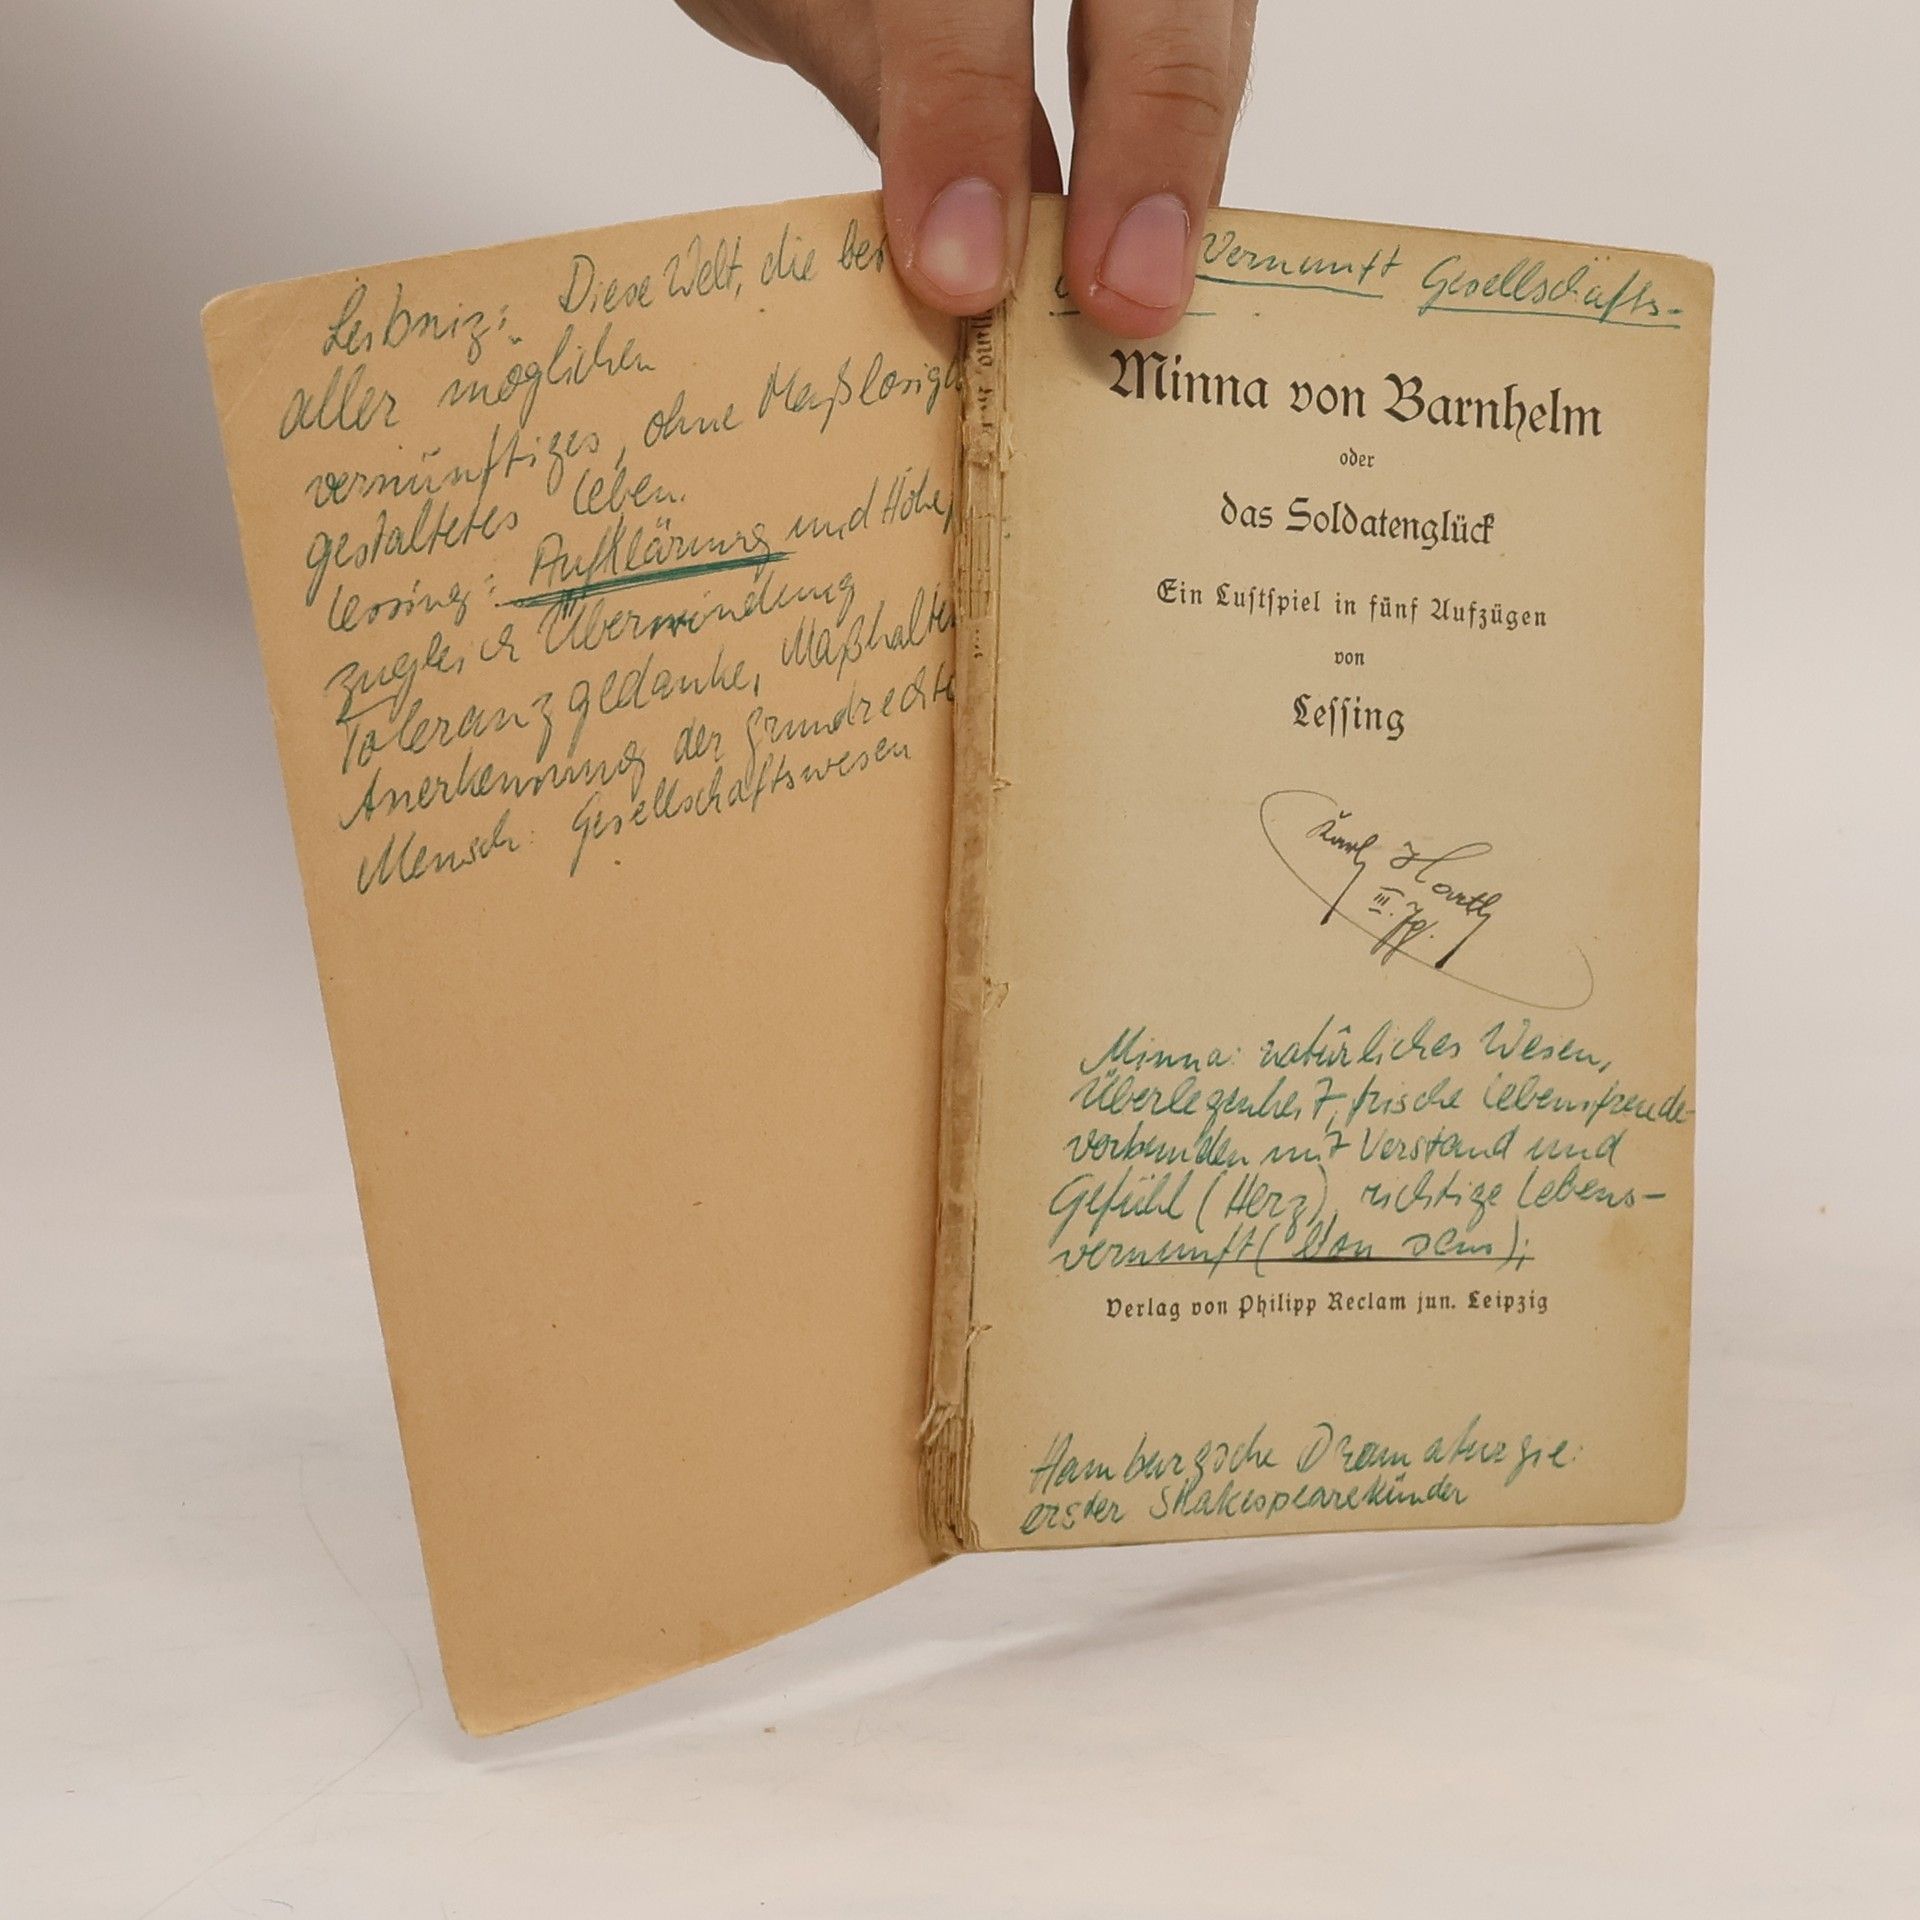 Leibniz: „Diese Welt, die bes
aller möglichen
vernünftiges, ohne Maßlosigk
gestaltetes Leben.
Lessing: Aufklärung und Höhe
zugleich Überwindung
Toleranzgedanke, Maßhalten
Anerkennung der Grundrechte
Mensch: Gesellschaftswesen
Vernunft Gesellschafts-
Minna von Barnhelm
oder
das Soldatenglück
Ein Lustspiel in fünf Aufzügen
von
Lessing
Karl Hartl
III. Jg.
Minna: natürliches Wesen,
Überlegenheit, frische Lebensfreude
verbunden mit Verstand und
Gefühl (Herz), richtige Lebens-
vernunft (bon sens);
Verlag von Philipp Reclam jun. Leipzig
Hamburgische Dramaturgie:
erster Shakespearekünder